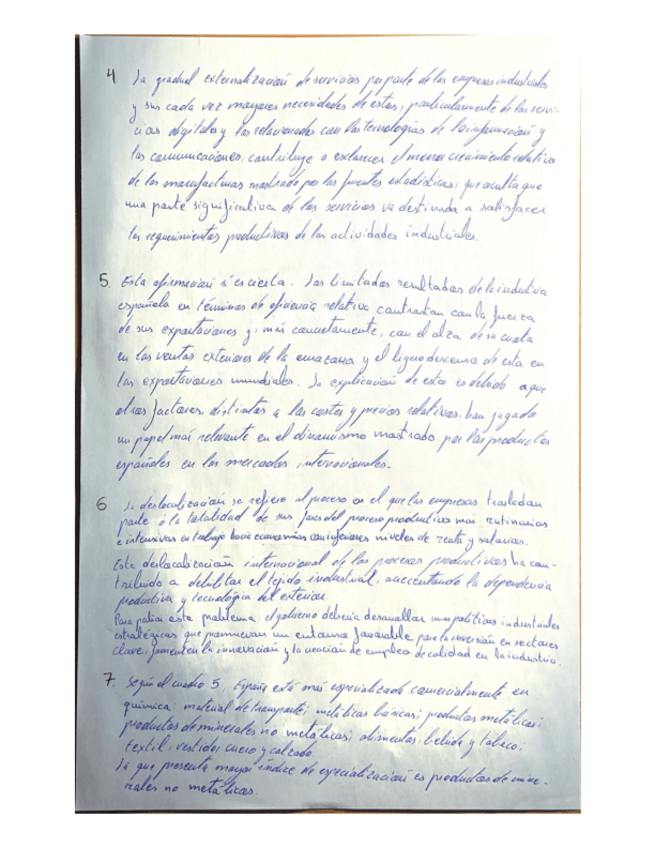 4 La gradual externalización de servicios por parte de las empresas industriales
y sus cada vez mayores necesidades de estos, particularmente de los servi-
cios digitales y los relacionados con las tecnologías de la información y
las comunicaciones, contribuye a esclarecer el menor crecimiento relativo
de las manufacturas mostrado por las fuentes estadísticas, que oculta que
una parte significativa de los servicios va destinada a satisfacer
los requerimientos productivos de las actividades industriales.
5. Esta afirmación sí es cierta. Los limitados resultados de la industria
española en términos de eficiencia relativa contrastan con la fuerza
de sus exportaciones y, más concretamente, con el alza de su cuota
en las ventas exteriores de la eurozona y el ligero descenso de esta en
las exportaciones mundiales. La explicación de esto es debido a que
otros factores, distintos a los costes y precios relativos, han jugado
un papel más relevante en el dinamismo mostrado por los productos
españoles en los mercados internacionales.
6 La deslocalización se refiere al proceso en el que las empresas trasladan
parte o la totalidad de sus fases del proceso productivo más rutinarias
e intensivas en trabajo hacia economías con inferiores niveles de renta y salarios.
Esta deslocalización internacional de los procesos productivos ha con-
tribuido a debilitar el tejido industrial, aumentando la dependencia
productiva y tecnológica del exterior.
Para paliar este problema el gobierno debería desarrollar unas políticas industriales
estratégicas que promuevan un entorno favorable para la inversión en sectores
clave, fomenten la innovación y la creación de empleo de calidad en la industria.
7. Según el cuadro 5, España está más especializada comercialmente en
química; material de transporte; metálicas básicas; productos metálicos;
productos de minerales no metálicos; alimentos, bebida y tabaco;
textil, vestidos cuero y calzado.
La que presenta mayor índice de especialización es productos de mine-
rales no metálicos.